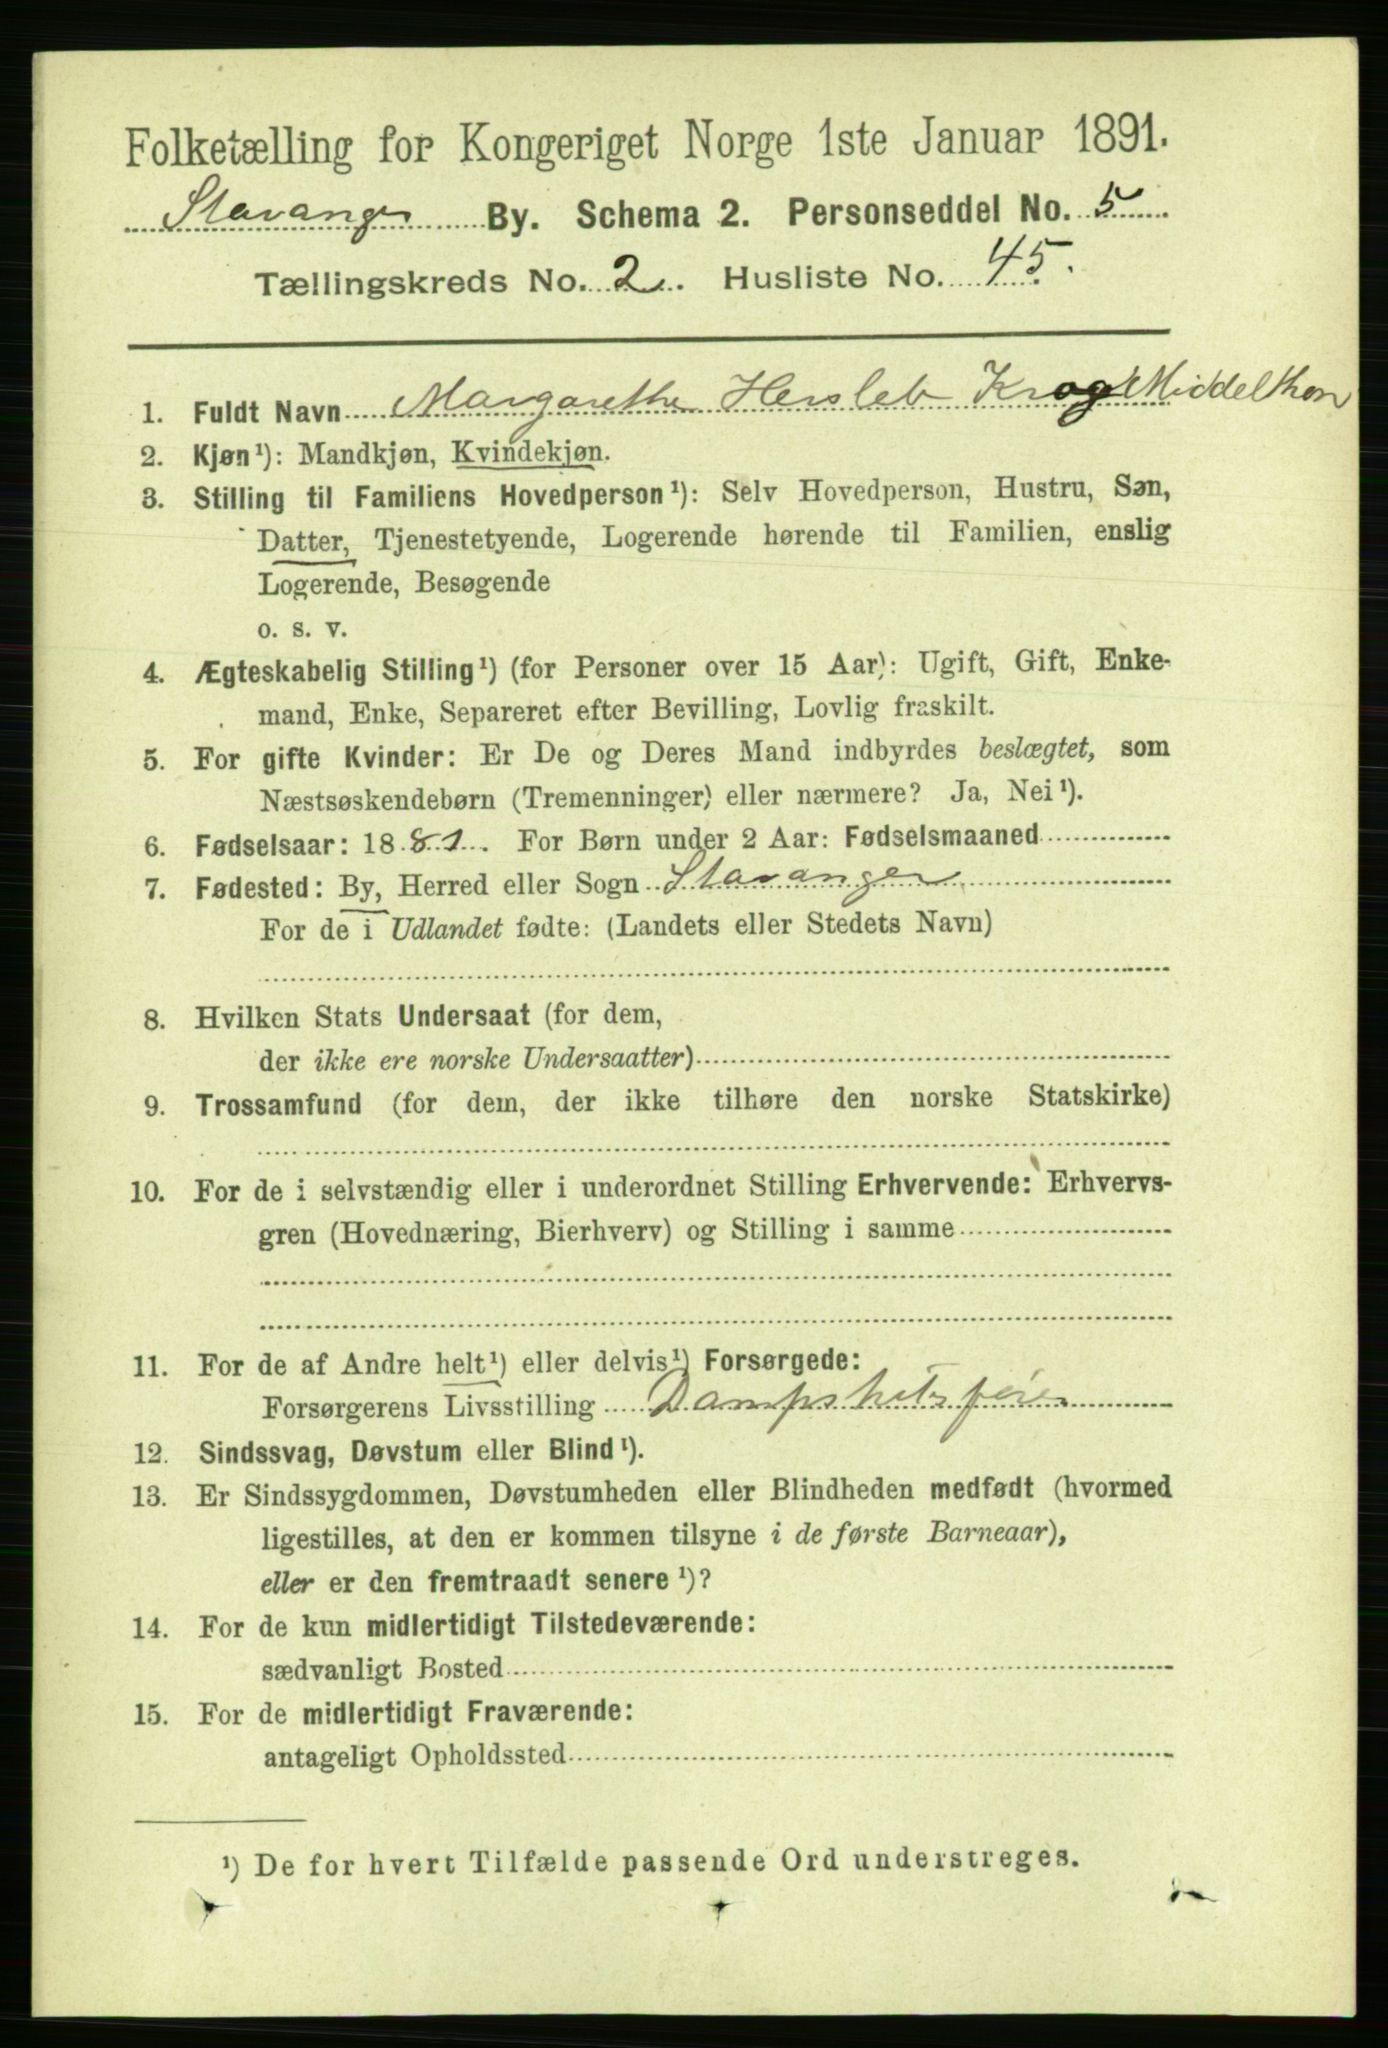 Folketælling for Kongeriget Norge 1ste Januar 1891.
Stavanger By. Schema 2. Personseddel No. 5
Tællingskreds No. 2. Husliste No. 45.
1. Fuldt Navn Margarethe Hersleb Krog Middelthon
2. Kjøn¹): Mandkjøn, Kvindekjøn.
3. Stilling til Familiens Hovedperson¹): Selv Hovedperson, Hustru, Søn,
Datter, Tjenestetyende, Logerende hørende til Familien, enslig
Logerende, Besøgende
o. s. v.
4. Ægteskabelig Stilling¹) (for Personer over 15 Aar): Ugift, Gift, Enke-
mand, Enke, Separeret efter Bevilling, Lovlig fraskilt.
5. For gifte Kvinder: Er De og Deres Mand indbyrdes beslægtet, som
Næstsøskendebørn (Tremenninger) eller nærmere? Ja, Nei¹).
6. Fødselsaar: 1881. For Børn under 2 Aar: Fødselsmaaned
7. Fødested: By, Herred eller Sogn Stavanger
For de i Udlandet fødte: (Landets eller Stedets Navn)
8. Hvilken Stats Undersaat (for dem,
der ikke ere norske Undersaatter)
9. Trossamfund (for dem, der ikke tilhøre den norske Statskirke)
10. For de i selvstændig eller i underordnet Stilling Erhvervende: Erhvervs-
gren (Hovednæring, Bierhverv) og Stilling i samme
11. For de af Andre helt¹) eller delvis¹) Forsørgede:
Forsørgerens Livsstilling
12. Sindssvag, Døvstum eller Blind¹).
13. Er Sindssygdommen, Døvstumheden eller Blindheden medfødt (hvormed
ligestilles, at den er kommen tilsyne i de første Barneaar),
eller er den fremtraadt senere¹)?
14. For de kun midlertidigt Tilstedeværende:
sædvanligt Bosted
15. For de midlertidigt Fraværende:
antageligt Opholdssted
¹) De for hvert Tilfælde passende Ord understreges.